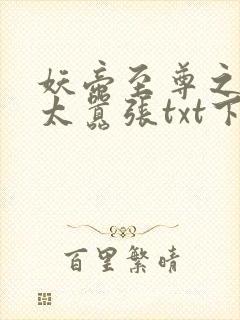 妖帝至尊之
太囂張txt下
百里繁晴